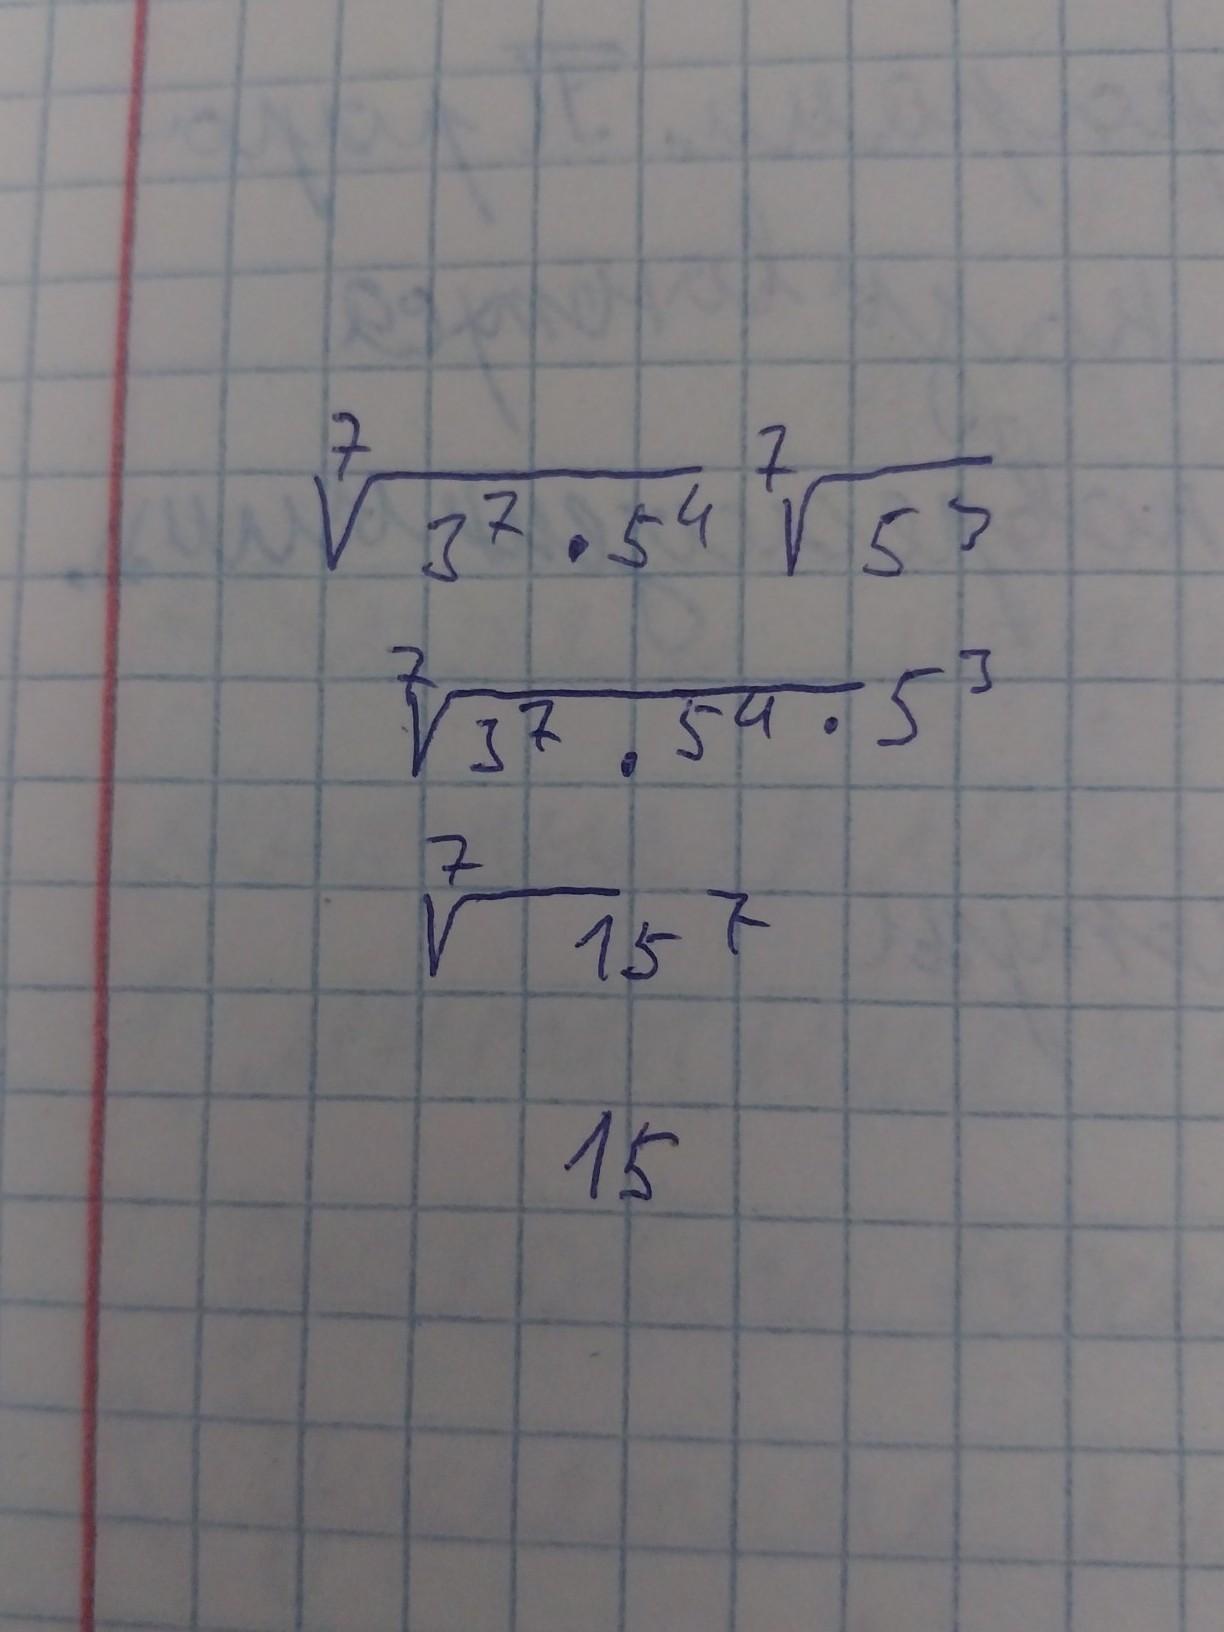 ⁷√(3⁷ · 5⁴) ⁷√(5³)
⁷√(3⁷ · 5⁴) · 5³
⁷√15⁷
15